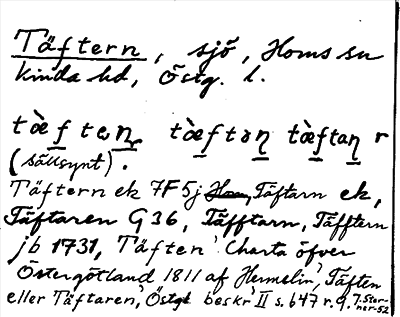 Täftern, sjö, Horns sn
kinda hd, Östg. l.
tæ̀ften tæ̀ftən tæ̀ftan r
(sällsynt).
Täftern ek 7F5j Täftarn ek,
Täftaren G36, Täfftarn, Täfftern
jb 1731, 'Täften' Charta öfver
Östergötland 1811 af Hermelin, 'Täften
eller Täftaren', Östgl beskr II s. 647 r. 9.